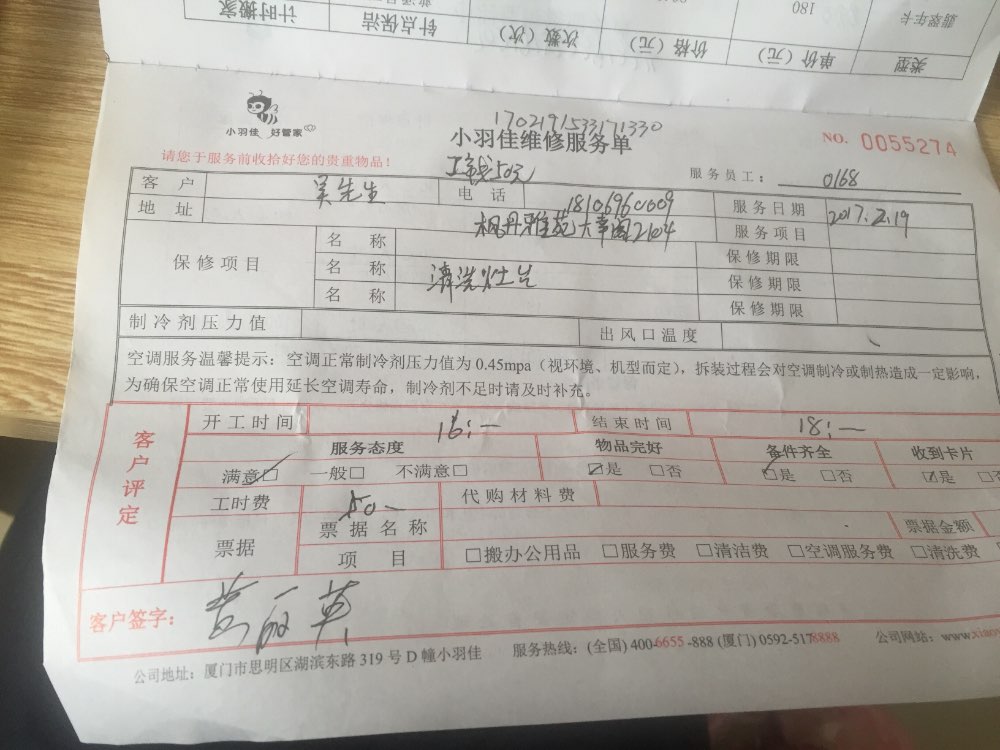 翡翠年卡 180
类型 单价（元） 价格（元） 次数（次） 针点保洁 计时搬家
小羽佳 好管家
1702191533171330
小羽佳维修服务单
NO. 0055274
请您于服务前收拾好您的贵重物品！
50元
服务员工： 0168
客户 吴先生 电话 18106960009 服务日期 2017.2.19
地址 枫丹雅苑 2104 服务项目
保修项目 名称 保修期限
名称 清洗灶台 保修期限
名称 保修期限
制冷剂压力值 出风口温度
空调服务温馨提示：空调正常制冷剂压力值为 0.45mpa（视环境、机型而定），拆装过程会对空调制冷或制热造成一定影响，
为确保空调正常使用延长空调寿命，制冷剂不足时请及时补充。
客户评定
开工时间 16:— 结束时间 18:—
服务态度 物品完好 备件齐全 收到卡片
满意☑ 一般□ 不满意□ ☑是 □否 ☑是 □否 ☑是 □否
工时费 50— 代购材料费
票据 票据名称 票据金额
项目 □搬办公用品 □服务费 □清洁费 □空调服务费 □清洗费
客户签字： 黄丽英
公司地址：厦门市思明区湖滨东路 319 号 D 幢小羽佳 服务热线：(全国) 400-6655-888 (厦门) 0592-5178888 公司网站：www.xiao